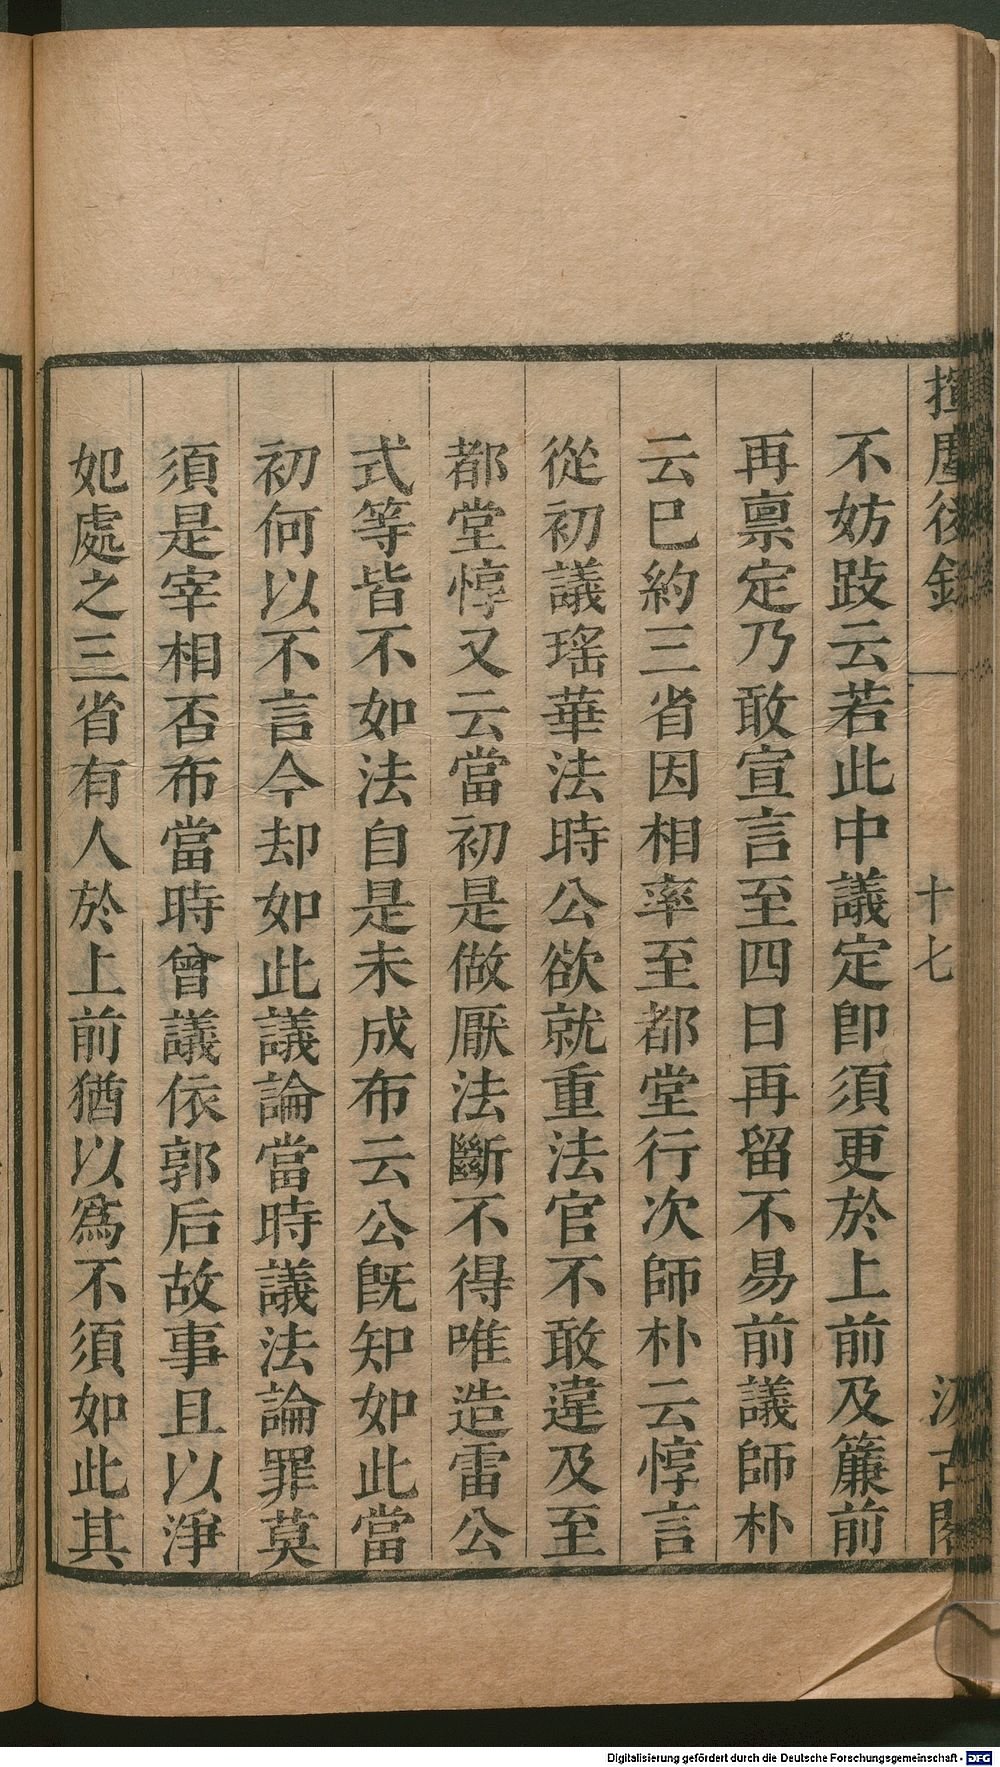 揮麈後錄
十七
汲古閣
不妨跂云若此中議定卽須更於上前及簾前
再禀定乃敢宣言至四日再留不易前議師朴
云巳約三省因相率至都堂行次師朴云惇言
從初議瑤華法時公欲就重法官不敢違及至
都堂惇又云當初是做厭法斷不得唯造雷公
式等皆不如法自是未成布云公旣知如此當
初何以不言今却如此議論當時議法論罪莫
須是宰相否布當時曾議依郭后故事且以淨
妃處之三省有人於上前猶以爲不須如此其
Digitalisierung gefördert durch die Deutsche Forschungsgemeinschaft - DFG